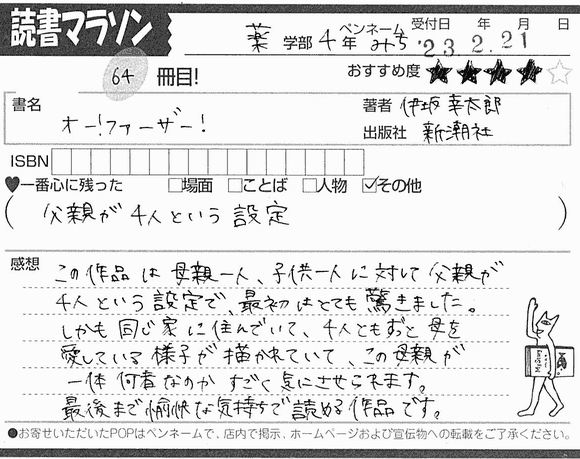 読書マラソン
薬 学部 4 年 ペンネーム みち 受付日 '23 年 2 月 21 日
64 冊目!
おすすめ度 ★★★★☆
書名 オー!ファーザー!
著者 伊坂 幸太郎
出版社 新潮社
ISBN
♥一番心に残った □場面 □ことば □人物 ☑その他
( 父親が4人という設定 )
感想
この作品は母親一人、子供一人に対して父親が
4人という設定で、最初はとても驚きました。
しかも同じ家に住んでいて、4人ともずっと母を
愛している様子が描かれていて、この母親が
一体何者なのかすごく気にさせられます。
最後まで愉快な気持ちで読める作品です。
●お寄せいただいたPOPはペンネームで、店内で掲示、ホームページおよび宣伝物への転載をご了承ください。